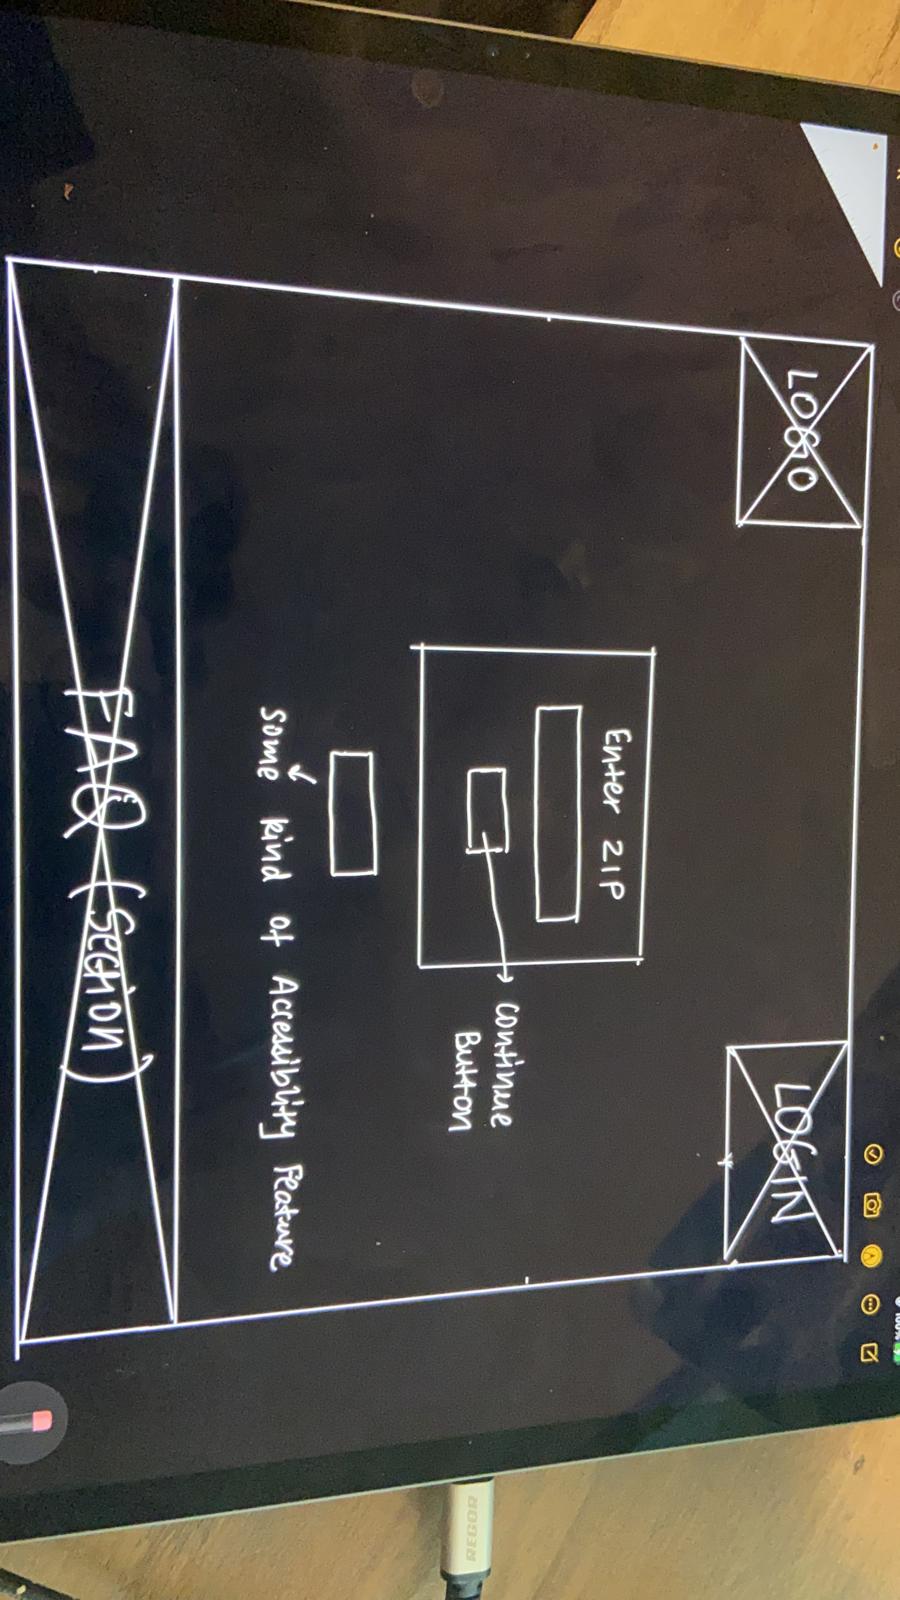 100%
LOGO
LOGIN
Enter ZIP
continue
Button
Some kind of Accessiblity Feature
FAQ (Section)
REGOR